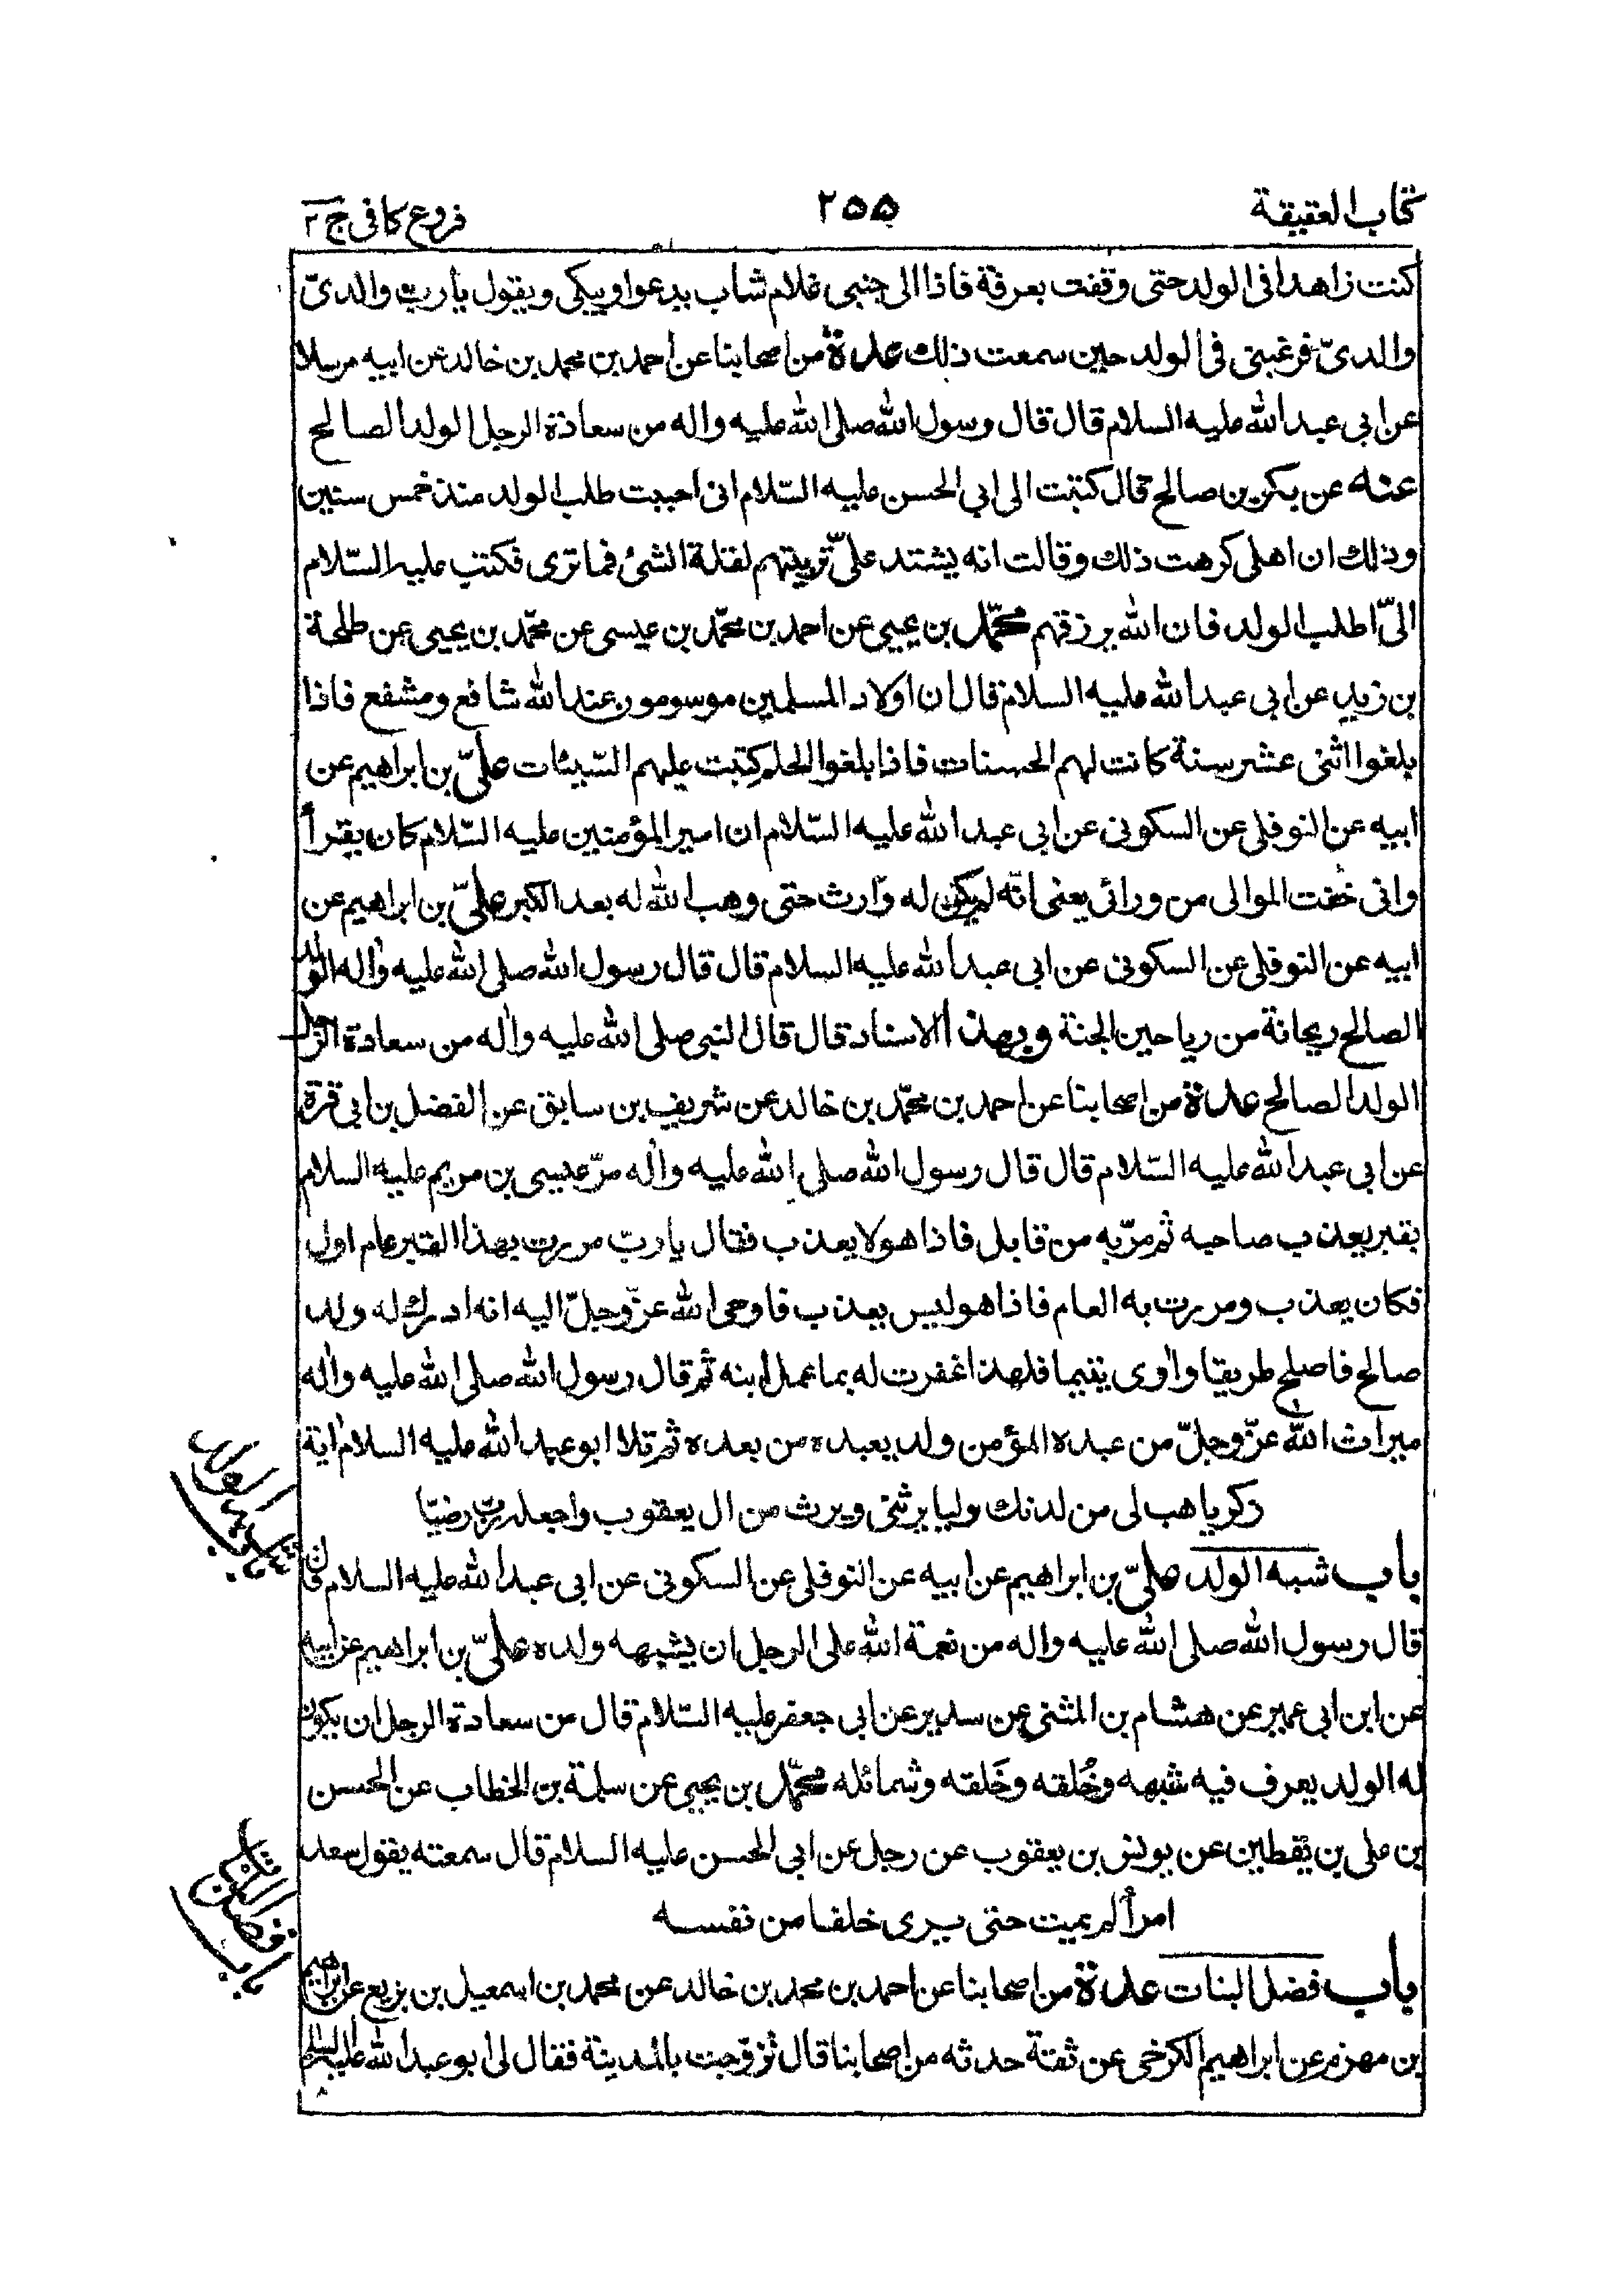 كتاب العقيقة
٢٥٥
فروع كافى ج ٢
كنت زاهدا فى الولد حتى وقفت بعرفة فاذا الى جنبى غلام شاب يدعوا ويبكى ويقول يا رب والدىّ
والدىّ فرغبنى فى الولد حين سمعت ذلك عدة من اصحابنا عن احمد بن محمد بن خالد عن ابيه مرسلا
عن ابى عبد الله عليه السلام قال قال رسول الله صلى الله عليه واله من سعادة الرجل الولد الصالح
عنه عن بكر بن صالح قال كتبت الى ابى الحسن عليه السّلام انى اجبت طلب الولد منذ خمس سنين
وذلك ان اهلى كرهت ذلك وقالت انه يشتد علىّ تربيتهم لقلة الشئ فما ترى فكتب عليه السّلام
الىّ اطلب الولد فان الله يرزقهم محمّد بن يحيى عن احمد بن محمّد بن عيسى عن محمّد بن يحيى عن طلحة
بن زيد عن ابى عبد الله عليه السلام قال ان اولاد المسلمين موسومون عند الله شافع ومشفع فاذا
بلغوا اثنى عشر سنة كانت لهم الحسنات فاذا بلغوا الحلم كتبت عليهم السّيئات علىّ بن ابراهيم عن
ابيه عن النوفلى عن السكونى عن ابى عبد الله عليه السّلام ان امير المؤمنين عليه السّلام كان يقرأ
وانى خفت الموالى من ورائى يعنى انّه لم يكن له وارث حتى وهب الله له بعد الكبر علىّ بن ابراهيم عن
ابيه عن النوفلى عن السكونى عن ابى عبد الله عليه السلام قال قال رسول الله صلى الله عليه واله الولد
الصالح ريحانة من رياحين الجنة وبهذا الاسناد قال قال النبى صلى الله عليه واله من سعادة الرجل
الولد الصالح عدة من اصحابنا عن احمد بن محمّد بن خالد عن شريف بن سابق عن الفضل بن ابى قرة
عن ابى عبد الله عليه السّلام قال قال رسول الله صلى الله عليه واله مرّ عيسى بن مريم عليه السلام
بقبر يعذب صاحبه ثم مرّ به من قابل فاذا هو لا يعذب فقال يا ربّ مررت بهذا القبر عام اول
فكان يعذب ومررت به العام فاذا هو ليس يعذب فاوحى الله عزّ وجلّ اليه انه ادرك له ولد
صالح فاصلح طريقا واوى يتيما فلهذا غفرت له بما عمل ابنه ثم قال رسول الله صلى الله عليه واله
ميراث الله عزّ وجلّ من عبده المؤمن ولد يعبده من بعده ثم تلا ابو عبد الله عليه السلام اية
زكريا هب لى من لدنك وليا يرثنى ويرث من ال يعقوب واجعله ربّ رضيّا
باب شبه الولد علىّ بن ابراهيم عن ابيه عن النوفلى عن السكونى عن ابى عبد الله عليه السلام قال
قال رسول الله صلى الله عليه واله من نعمة الله على الرجل ان يشبهه ولده علىّ بن ابراهيم عن ابيه
عن ابن ابى عمير عن هشام بن المثنى عن سدير عن ابى جعفر عليه السّلام قال من سعادة الرجل ان يكون
له الولد يعرف فيه شبهه وخُلقه وخَلقه وشمائله محمّد بن يحيى عن سلمة بن الخطاب عن الحسن
بن على بن يقطين عن يونس بن يعقوب عن رجل عن ابى الحسن عليه السلام قال سمعته يقول سعد
امرأ لم يميت حتى يرى خلفا من نفسه
باب فضل البنات عدة من اصحابنا عن احمد بن محمد بن خالد عن محمد بن اسمعيل بن بزيع عن ابراهيم
بن مهزم عن ابراهيم الكرخى عن ثقة حدثه من اصحابنا قال تزوّجت بالمدينة فقال لى ابو عبد الله عليه السلام
باب شبه الولد
باب فضل البنات